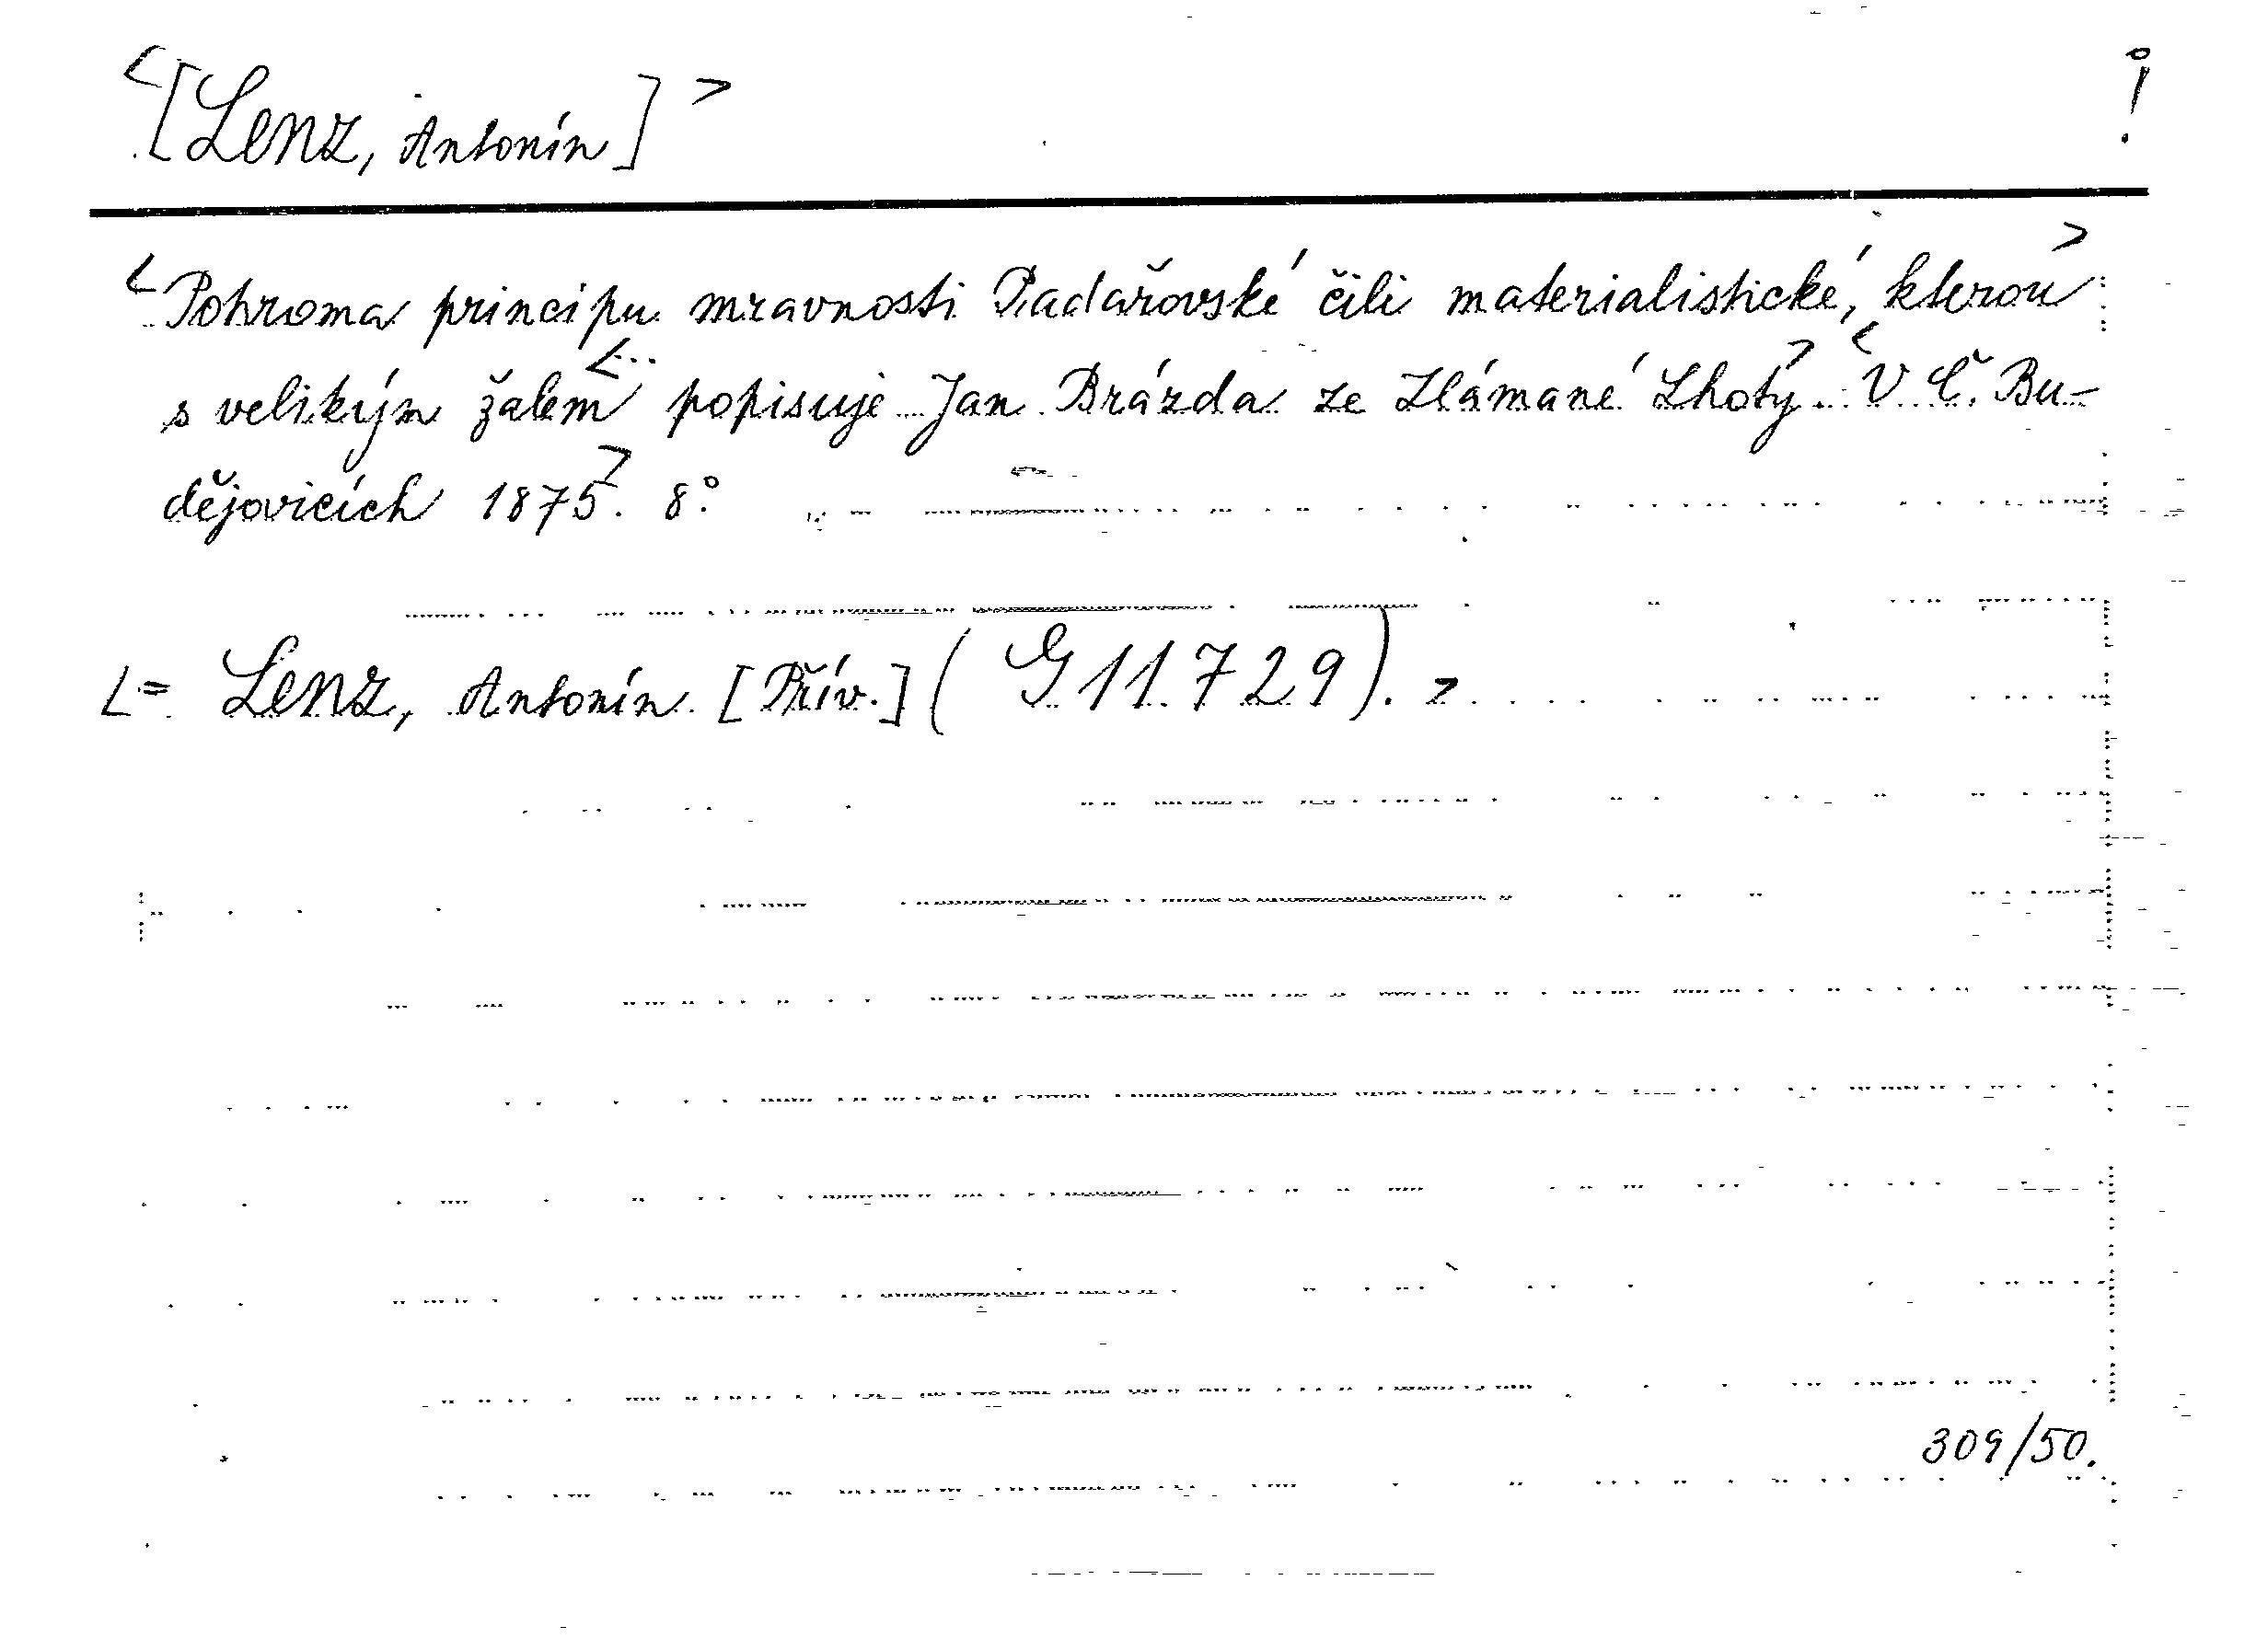 <[Lenz, Antonín]> !
<Pohroma principu mravnosti Padařovské čili materialistické, kterou>
s velikým žalem <... popisuje Jan Brázda ze Zlámané Lhoty>. <V Č. Bu-
dějovicích 1875>. 8°.
<= Lenz, Antonín [Přív.] (G 11.729). >
309/50.